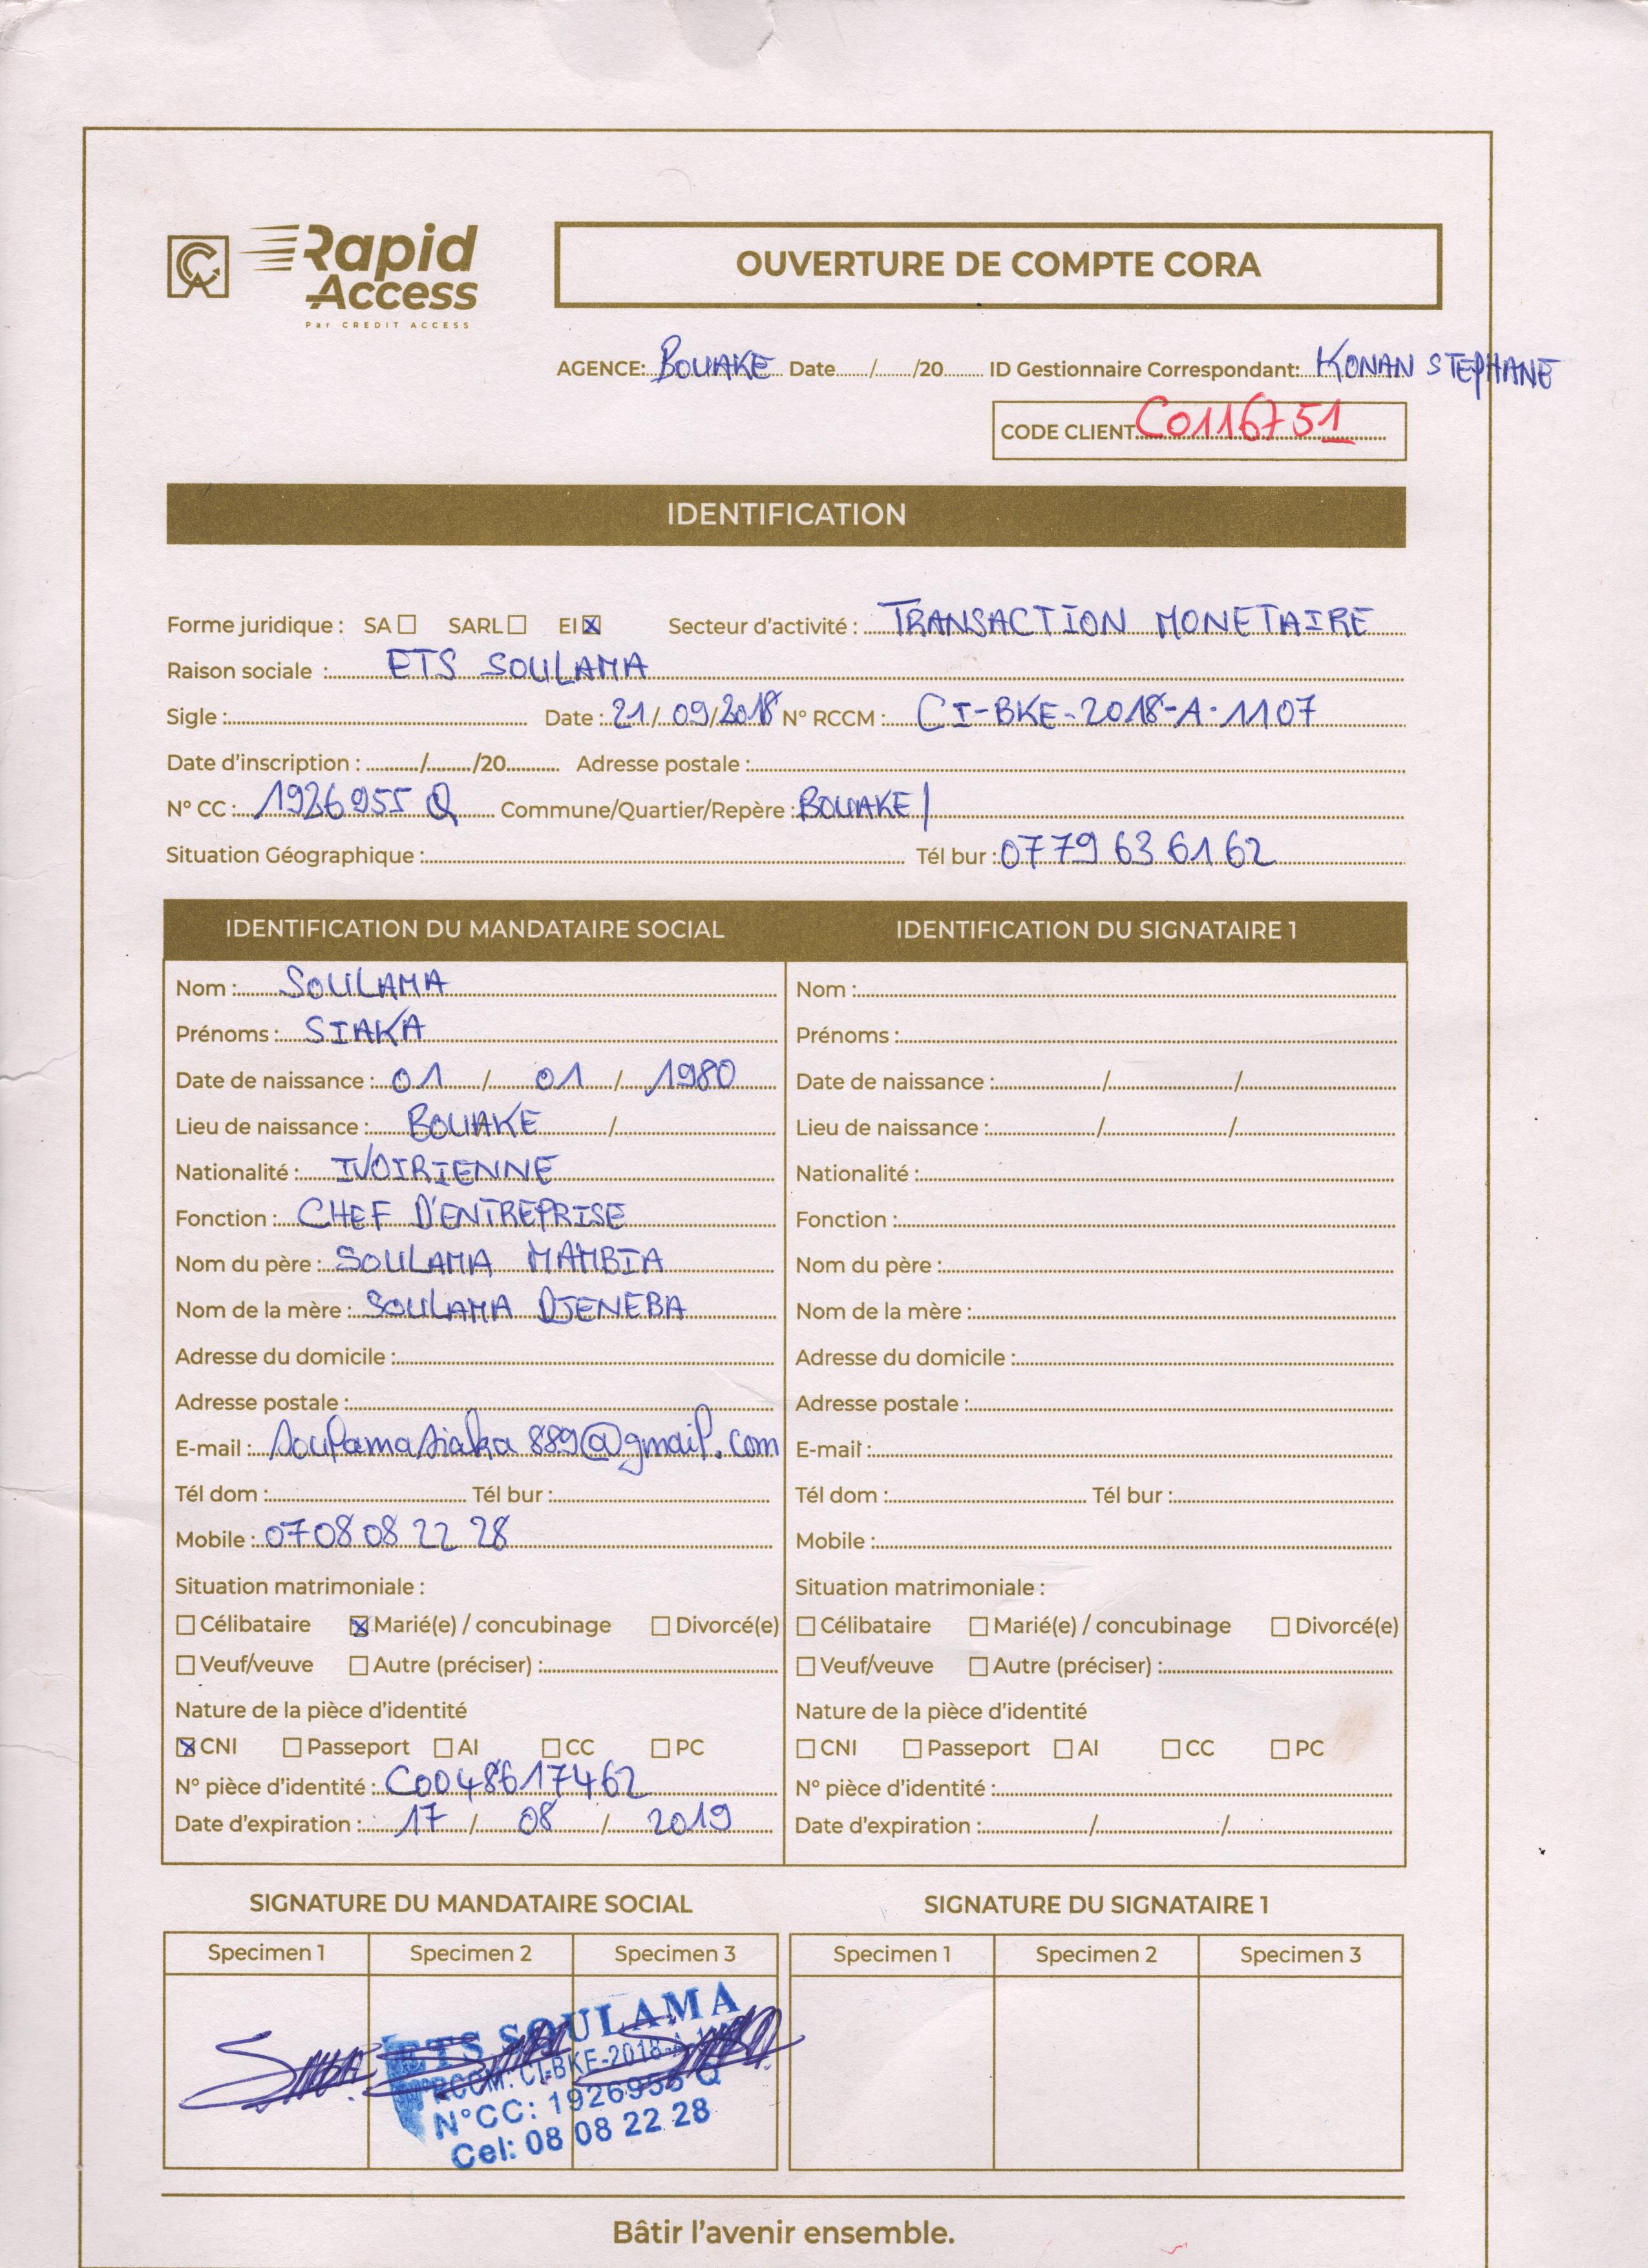 Rapid Access
Par CREDIT ACCESS
OUVERTURE DE COMPTE CORA
AGENCE: BOUAKE Date....../....../20...... ID Gestionnaire Correspondant: KONAN STEPHANE
CODE CLIENT C0116751
IDENTIFICATION
Forme juridique : SA ☐ SARL ☐ EI ☒ Secteur d'activité : TRANSACTION MONETAIRE
Raison sociale : ETS SOULAMA
Sigle : Date : 21/09/2018 N° RCCM : CI-BKE-2018-A-1107
Date d'inscription : ....../....../20...... Adresse postale :
N° CC : 1926955 Q Commune/Quartier/Repère : BOUAKE /
Situation Géographique : Tél bur : 07 79 63 61 62
IDENTIFICATION DU MANDATAIRE SOCIAL
Nom : SOULAMA
Prénoms : SIAKA
Date de naissance : 01 / 01 / 1980
Lieu de naissance : BOUAKE /
Nationalité : IVOIRIENNE
Fonction : CHEF D'ENTREPRISE
Nom du père : SOULAMA MAMBIA
Nom de la mère : SOULAMA DJENEBA
Adresse du domicile :
Adresse postale :
E-mail : soulamasiaka889@gmail.com
Tél dom : Tél bur :
Mobile : 07 08 08 22 28
Situation matrimoniale :
☐ Célibataire ☒ Marié(e) / concubinage ☐ Divorcé(e)
☐ Veuf/veuve ☐ Autre (préciser) :
Nature de la pièce d'identité
☒ CNI ☐ Passeport ☐ AI ☐ CC ☐ PC
N° pièce d'identité : C0048617462
Date d'expiration : 17 / 08 / 2019
IDENTIFICATION DU SIGNATAIRE 1
Nom :
Prénoms :
Date de naissance : / /
Lieu de naissance : / /
Nationalité :
Fonction :
Nom du père :
Nom de la mère :
Adresse du domicile :
Adresse postale :
E-mail :
Tél dom : Tél bur :
Mobile :
Situation matrimoniale :
☐ Célibataire ☐ Marié(e) / concubinage ☐ Divorcé(e)
☐ Veuf/veuve ☐ Autre (préciser) :
Nature de la pièce d'identité
☐ CNI ☐ Passeport ☐ AI ☐ CC ☐ PC
N° pièce d'identité :
Date d'expiration : / /
SIGNATURE DU MANDATAIRE SOCIAL
Specimen 1 Specimen 2 Specimen 3
ETS SOULAMA
RCCM: CI-BKE-2018-A
N°CC: 1926955 Q
Cel: 08 08 22 28
SIGNATURE DU SIGNATAIRE 1
Specimen 1 Specimen 2 Specimen 3
Bâtir l'avenir ensemble.